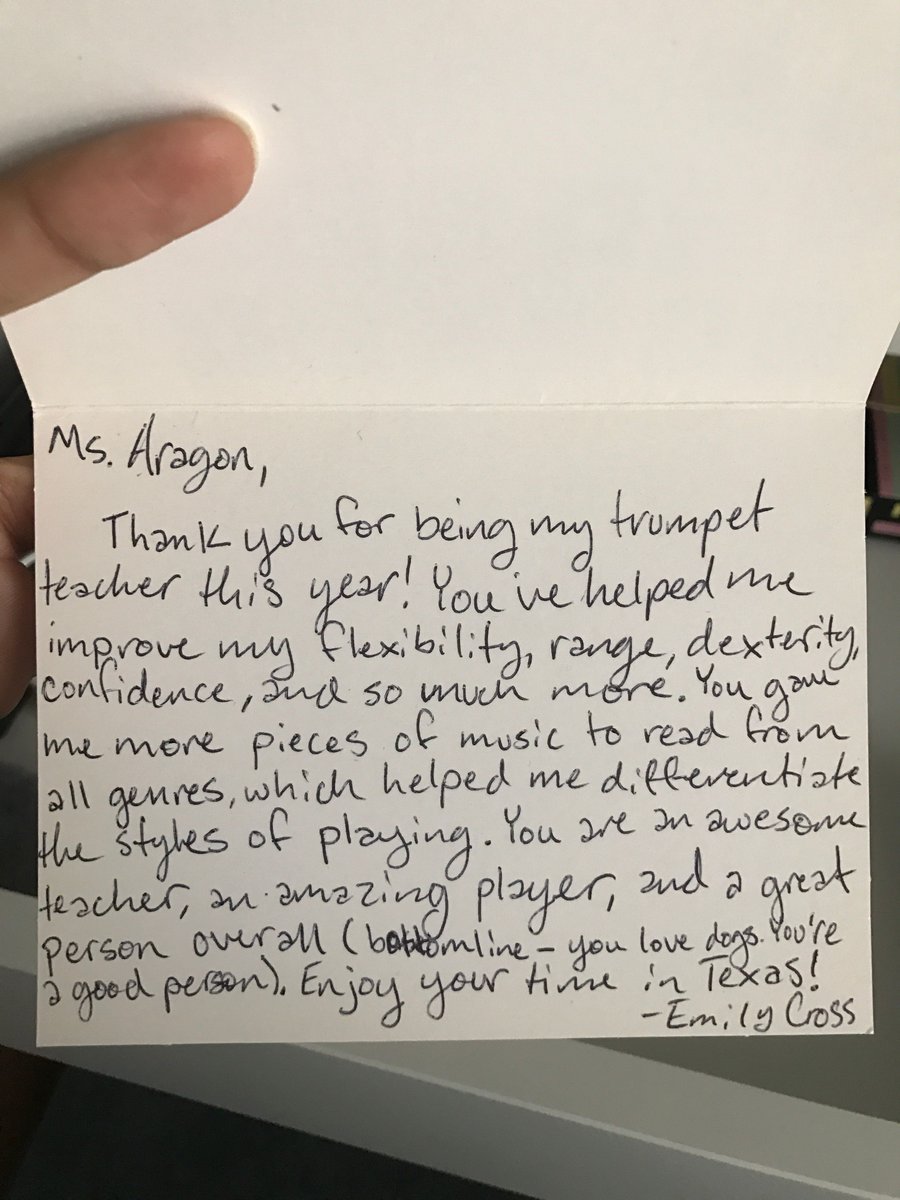 Ms. Aragon,
Thank you for being my trumpet
teacher this year! You've helped me
improve my flexibility, range, dexterity,
confidence, and so much more. You gave
me more pieces of music to read from
all genres, which helped me differentiate
the styles of playing. You are an awesome
teacher, an amazing player, and a great
person overall (bottomline - you love dogs. You're
a good person). Enjoy your time in Texas!
- Emily Cross